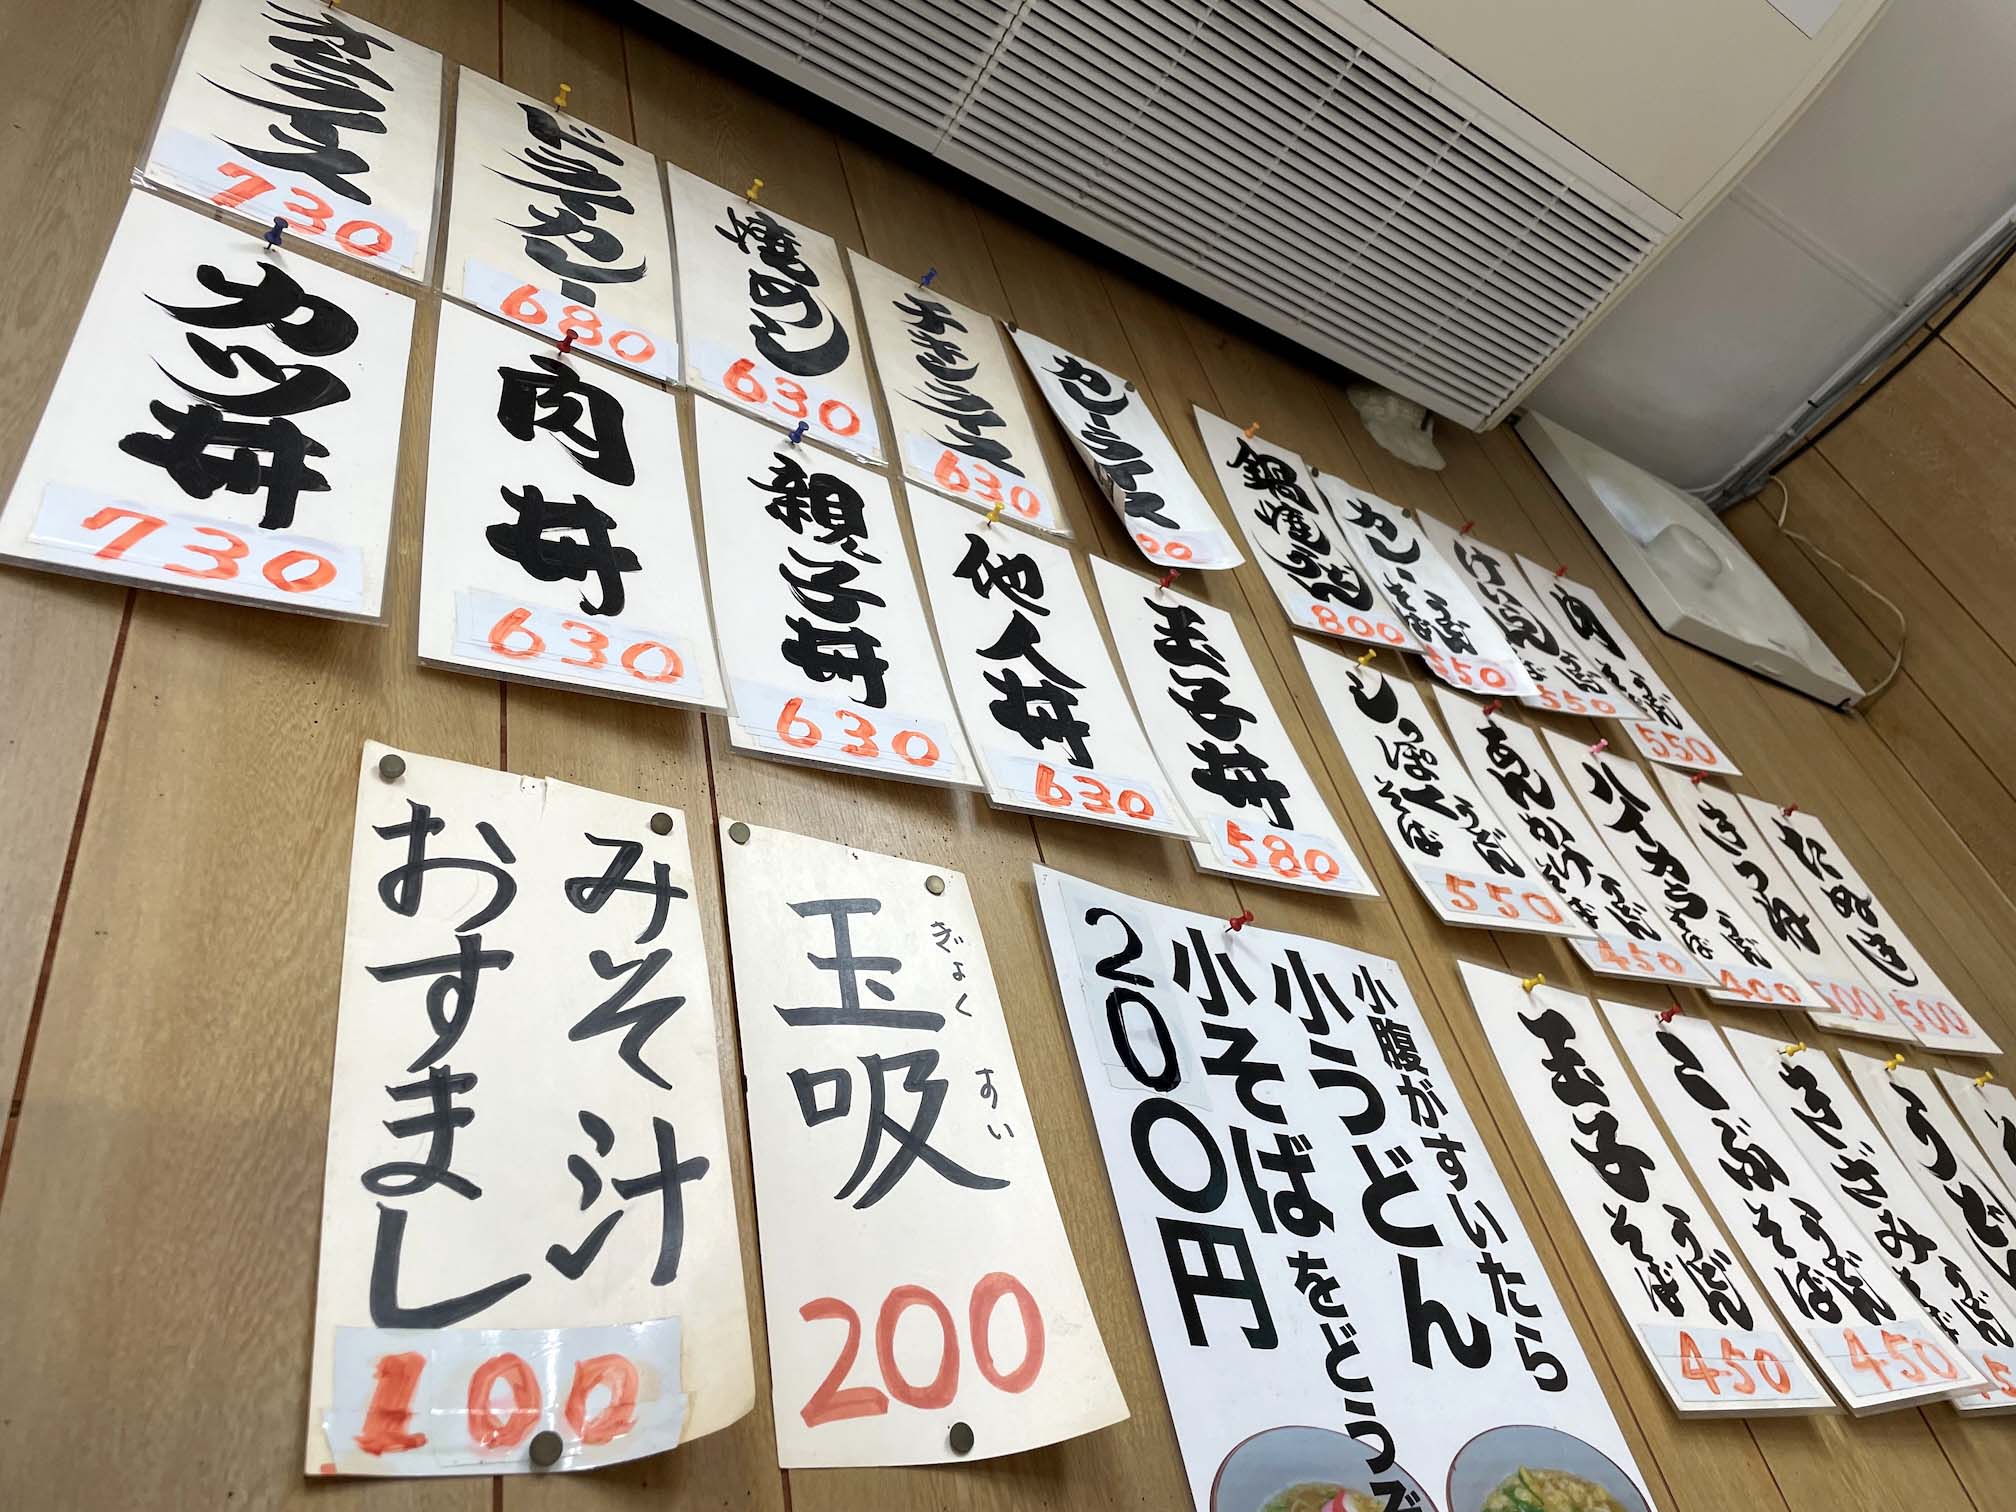 カツライス
730
ドライカレー
680
焼めし
630
チキンライス
630
カレーライス
00
カツ丼
730
肉丼
630
親子丼
630
他人丼
630
玉子丼
580
鍋焼うどん
800
カレーうどん
そば
550
けいらん
うどん
そば
550
肉
うどん
そば
550
しっぽく
うどん
そば
550
あんかけ
うどん
そば
450
ハイカラ
うどん
そば
400
きつね
500
たぬき
500
みそ汁
おすまし
100
玉吸
ぎょく
すい
200
小腹がすいたら
小うどん
小そばをどうぞ
200円
玉子
うどん
そば
450
こぶ
うどん
そば
450
きざみ
うどん
そば
うどん